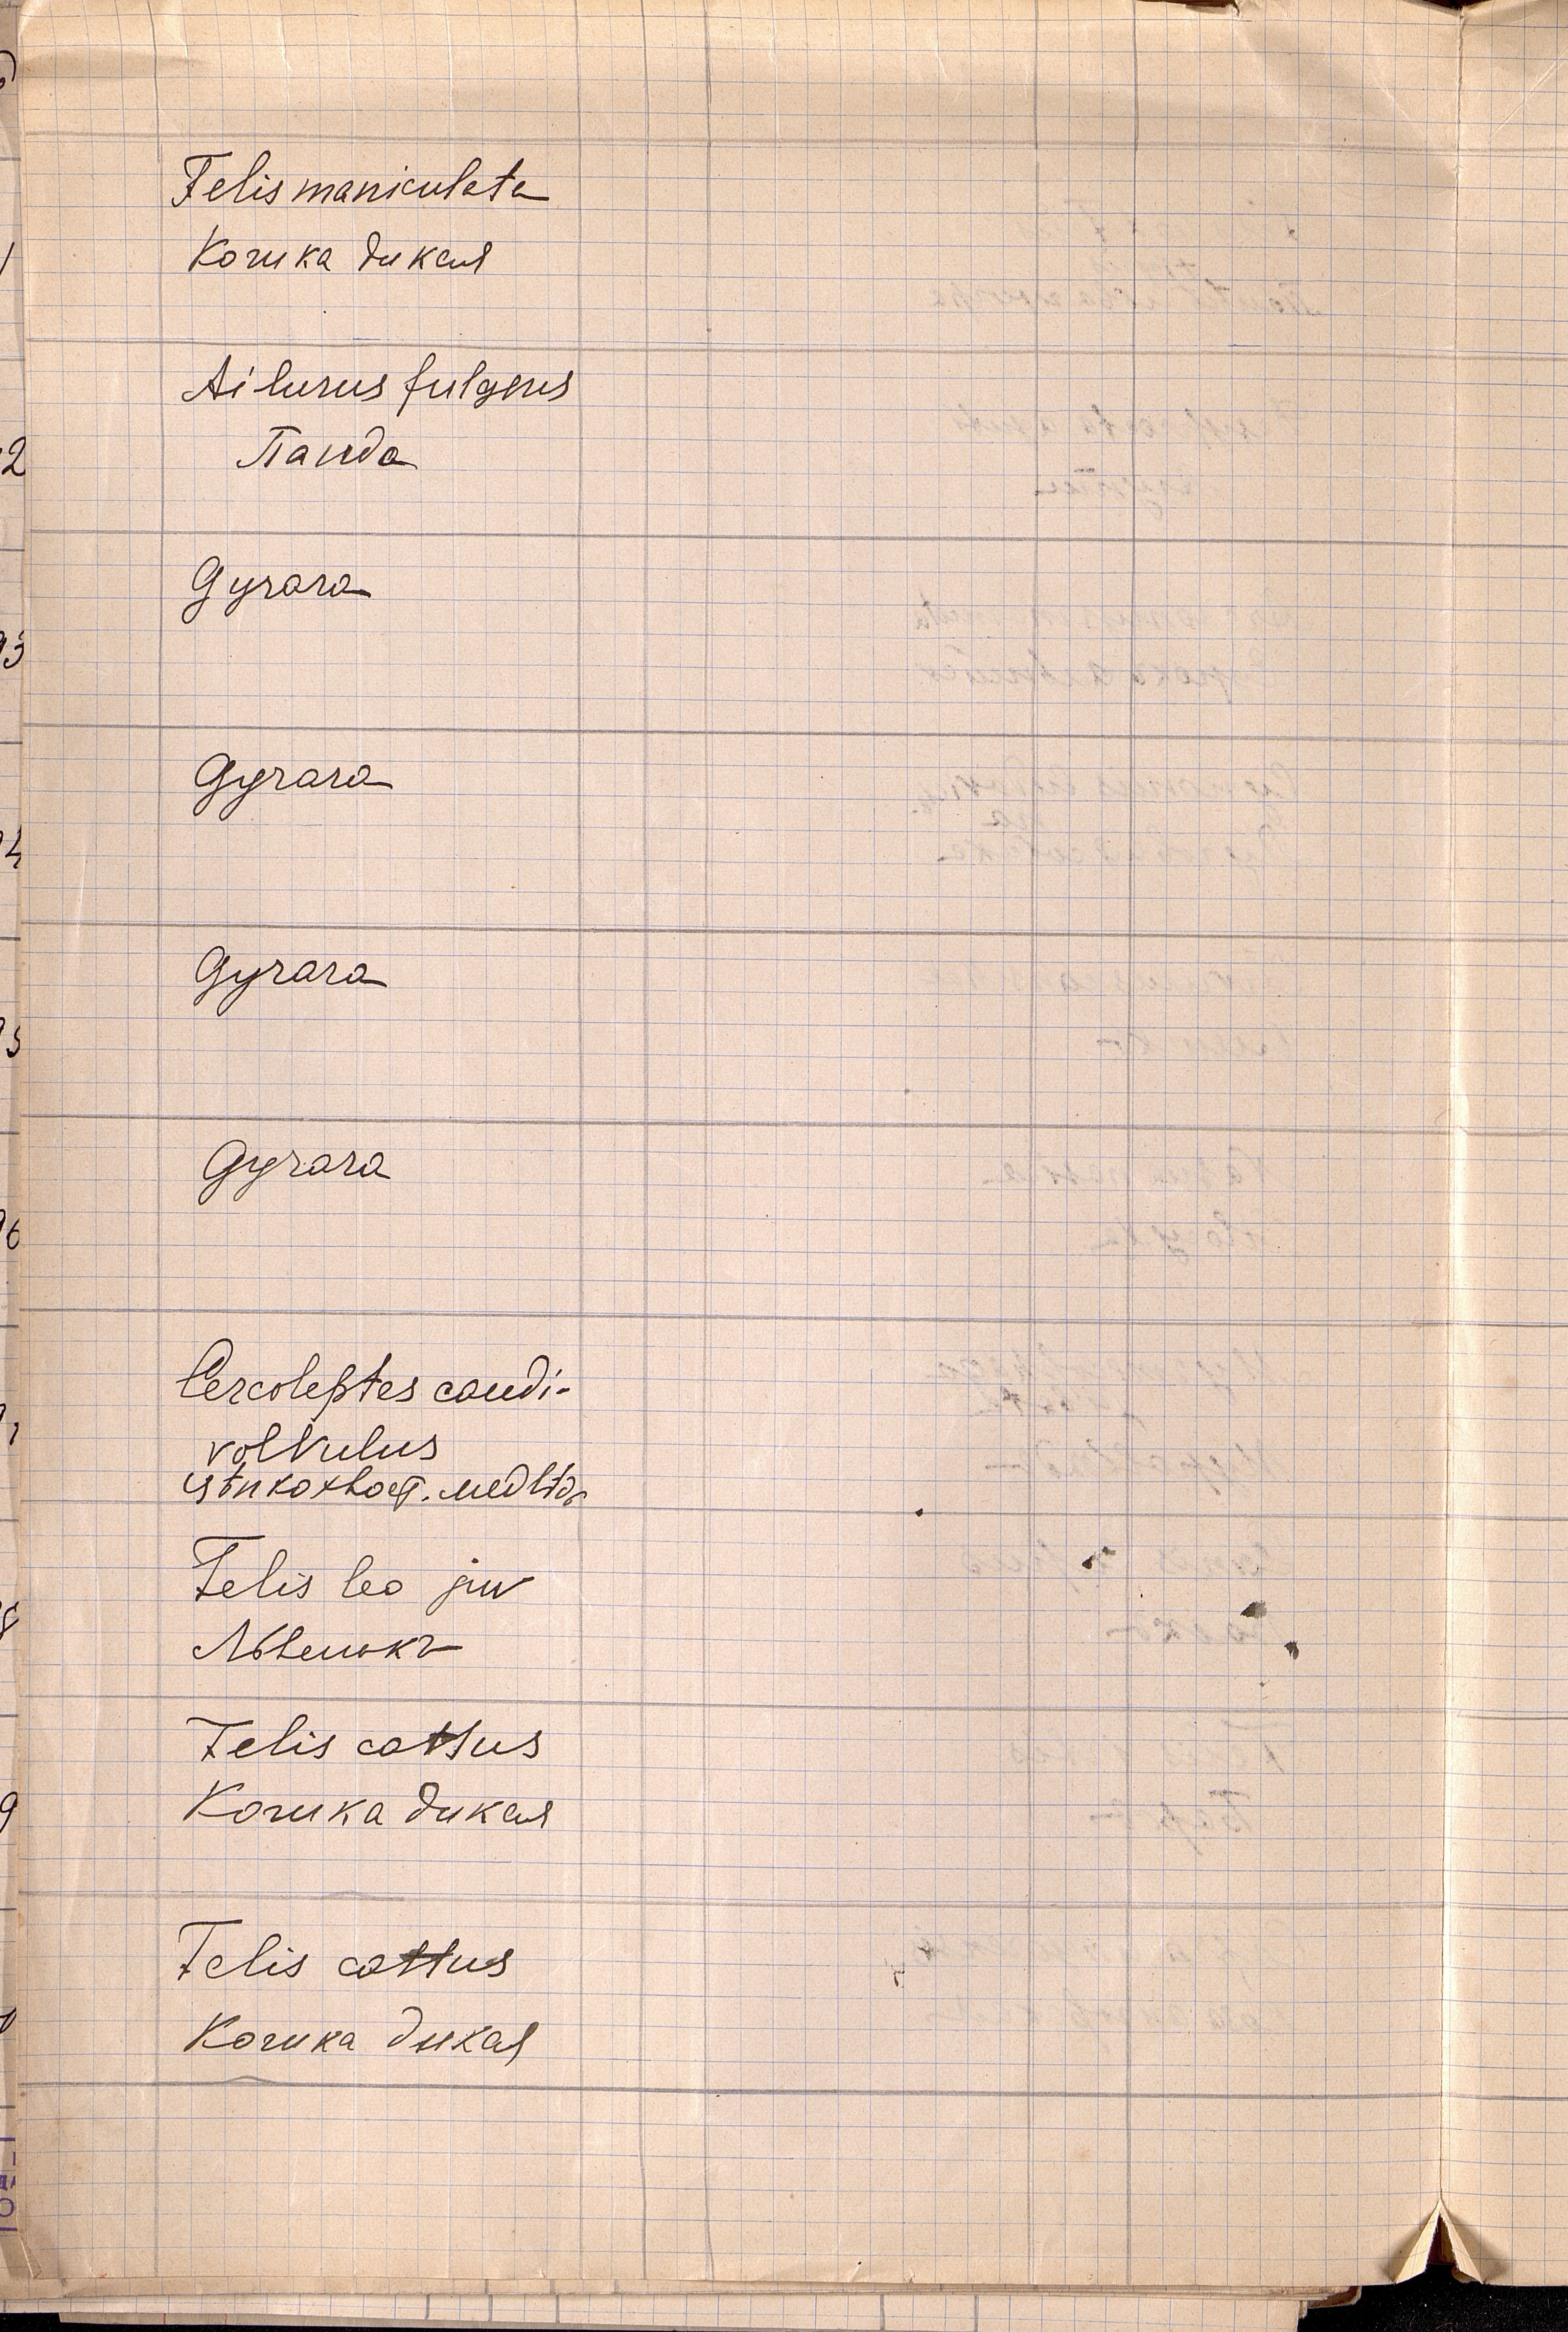 Felis maniculata
Кошка дикая
Ailurus fulgens
Панда
Gyrara
Gyrara
Gyrara
Gyrara
Cercoleptes caudi-
volvulus
цѣпкохвост. медвѣдь
Felis leo juv
Львенокъ
Felis cattus
Кошка дикая
Felis cattus
Кошка дикая